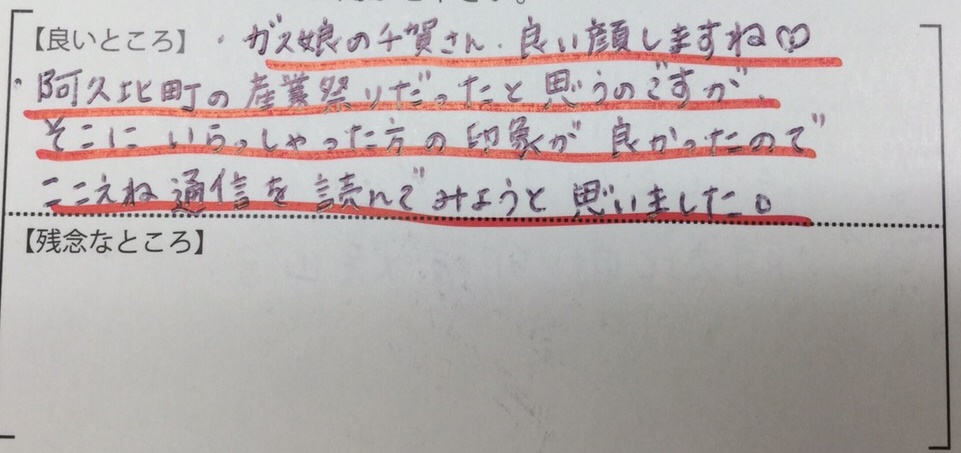 【良いところ】・ガス娘の千賀さん、良い顔しますね♡
・阿久比町の産業祭りだったと思うのですが、
そこにいらっしゃった方の印象が良かったので
ここえね通信を読んでみようと思いました。
【残念なところ】